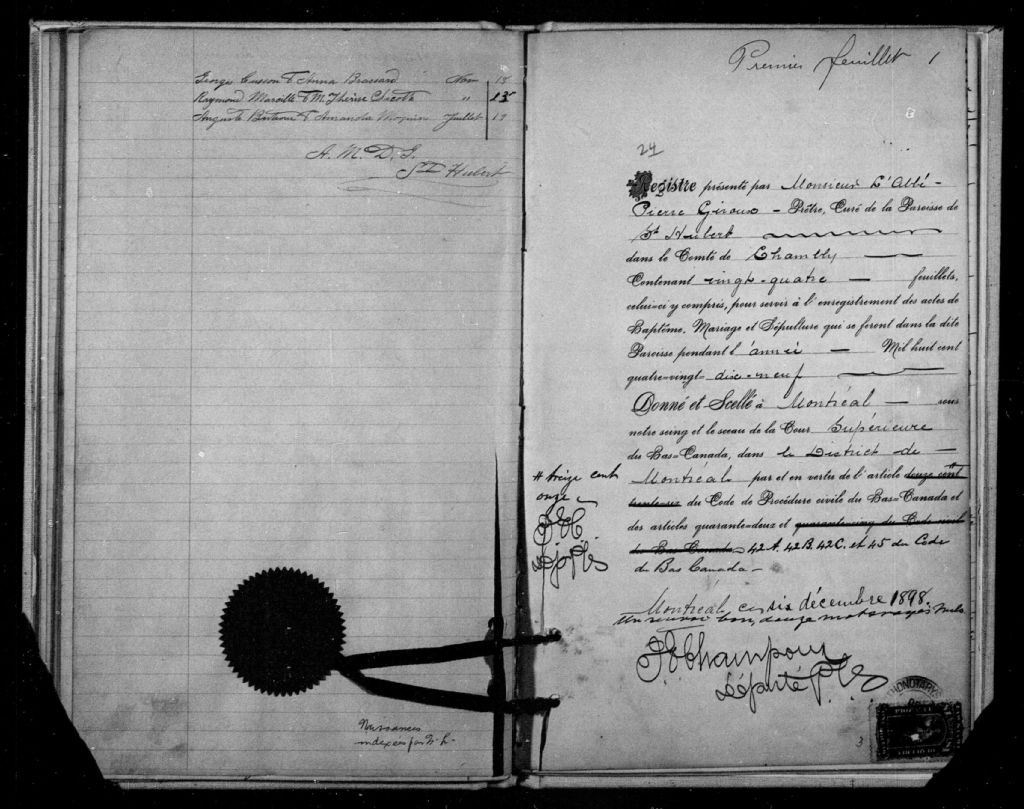 George Cusson & Anna Brassard Nov 15
Raymond Marcille & M. Thérèse " 15
Auguste & Amanda Juillet 19
A. M. D. G.
St Hubert
Naissances
indexées par
Premier feuillet 1
24
Registre présenté par Monsieur L'Abbé -
Pierre Giroux - Prêtre, Curé de la Paroisse de
St Hubert
dans le Comté de Chambly -
Contenant vingt-quatre - feuillets,
celui-ci y compris, pour servir à l'enregistrement des actes de
Baptême, Mariage et Sépulture qui se feront dans la dite
Paroisse pendant l'année - Mil huit cent
quatre-vingt- dix-neuf
Donné et Scellé à Montréal - sous
notre seing et le sceau de la Cour Supérieure
du Bas-Canada, dans le District de -
Montréal par et en vertu de l'article douze cent
# treize cent
onze
du Code de Procédure civile du Bas-Canada et
des articles quarante-deux et quarante-cinq du Code civil
du Bas Canada 42A. 42B. 42C. et 45 du Code
du Bas Canada -
Montréal, ce six décembre 1898
Un renvoi bon, douze mots rayés nuls
Député P.C.S.
3